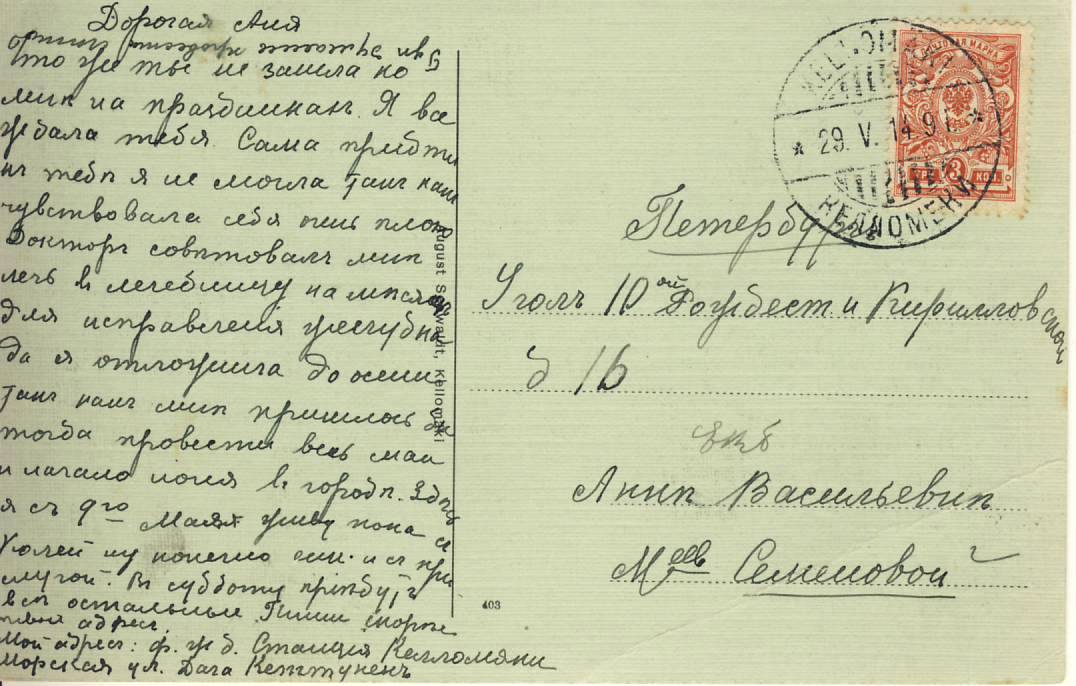 Дорогая Аня
что же ты не зашла ко
мнѣ на праздникахъ. Я все
ждала тебя. Сама придти
къ тебѣ я не могла такъ какъ
чувствовала себя очень плохо
Докторъ совѣтовалъ мнѣ
лечь въ лечебницу на мѣсяцъ
для исправленія желудка
да я отложила до осени
такъ какъ мнѣ пришлось бы
тогда провести весь май
и начало іюня въ городѣ. Здѣсь
я съ 9го Мая живу пока съ
Колей ну конечно и съ при
слугой. Въ субботу пріѣдутъ
всѣ остальные Пиши скорѣе
твой адресъ.
Мой адресъ: Ф. ж д. Станція Келломяки
Морская ул. Дача Кеттуненъ
August Schavalit, Kellomäki
403
KELLOMÄKI
29. V. 14 9
КЕЛЛОМЯКИ
ПОЧТОВАЯ МАРКА
3 КОП.
Петербургъ
Уголъ 10ой Рождест и Кирилловской
д 1Б
Аннѣ Васильевнѣ
Мщев Семеновой